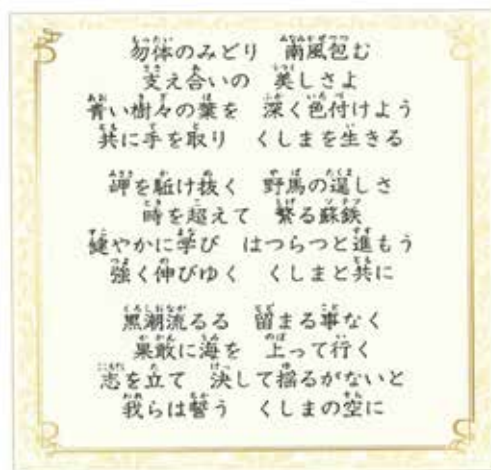 勿体のみどり　南風包む
支え合いの　美しさよ
青い樹々の葉を　深く色付けよう
共に手を取り　くしまを生きる
岬を駈け抜く　野馬の逞しさ
時を超えて　繁る蘇鉄
健やかに学び　はつらつと進もう
強く伸びゆく　くしまと共に
黒潮流るる　留まる事なく
果敢に海を　上って行く
志を立て　決して揺るがないと
我らは誓う　くしまの空に